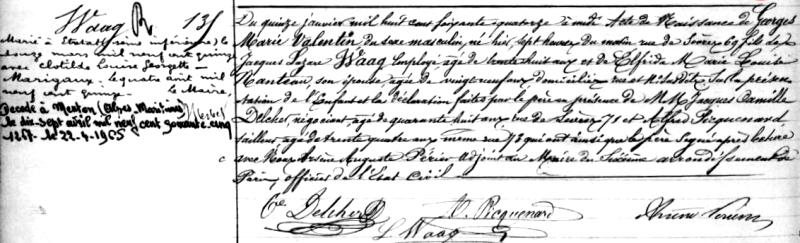 Waag R 135
Marié à Etretat (Seine inférieure) le
douze mars mil neuf cent quinze
avec Clotilde Louise Georgette
Marizaux. Le quatre août mil
neuf cent quinze. Le Maire
Décédé à Menton (Alpes Maritimes)
le dix-sept avril mil neuf cent soixante cinq
1267. le 22-4-1965
Du quinze janvier mil huit cent soixante quatorze à midi Acte de Naissance de Georges
Marie Valentin du sexe masculin, né hier, sept heures du matin rue de Sèvres 69, fils de
Jacques Lazare Waag Employé âgé de trente huit ans et de Elfride Marie Louise
Nanteau son épouse âgée de vingt neuf ans domiciliés rue et No susdits. Sur la présen
tation de l'Enfant et la déclaration faites par le père en présence de MM. Jacques Camille
Delcher, négociant âgé de quarante huit ans rue de Sèvres 71 et Alfred Picquenard
tailleur, âgé de trente quatre ans, même rue 73 qui ont ainsi que le père signé après lecture
avec Nous Arsène Auguste Périer adjoint au Maire du Sixième arrondissement de
Paris, officier de l'Etat Civil
Ce Delcher A. Picquenard Arsène Perier
L Waag